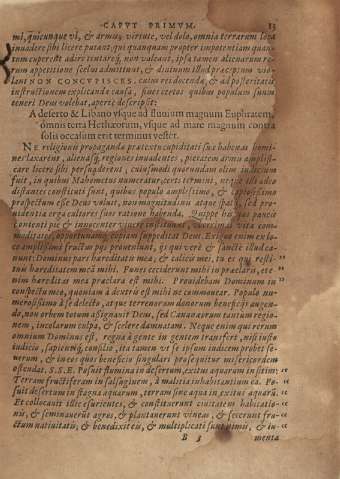 CAPVT PRIMVM. 13
mi, quicunque vi, & armis, virtute, vel dolo, omnia terrarum loca
inuadere sibi licere putant, qui quanquam propter impotentiam quan-
tum cuperent adire tentarent, non valeant, ipsa tamen alienarum re-
rum appetitione scelus admittunt, & diuinum illud præceptum vio-
lant NON CONCVPISCES, cuius recidendæ, & ad posteritatis
instructionem explicandæ causa, fines certos quibus populum suum
teneri Deus volebat, aperte descripsit:
A deserto & Libano vsque ad fluuium magnum Euphratem,
omnis terra Hethæorum, vsque ad mare magnum contra
solis occasum erit terminus vester.
NE religionis propaganda prætextu cupiditati suæ habenas homi-
nes laxarent, alienasq; regiones inuadentes, pietatem armis amplifi-
care licere sibi persuaderent, cuiusmodi quorundam olim iudicium
fuit, in quibus Mahometus numeratur, certi termini, neque illi adeo
distantes constituti sunt, quibus populo amplissimo, &
prospectum esse Deus voluit, non magnitudinis atque spatij, sed pro-
uidentia erga cultores suos ratione habenda. Quippe his qui paucis
contenti pie & innocenter viuere instituunt, vita com-
moditates, opportunam copiam suppeditat Deus. Exiguo enim ex lo-
co amplissimi fructus pijs proueniunt, qui vere & sancte illud ca-
nunt: Dominus pars hæreditatis meæ, & calicis mei, tu es qui resti- "
tues hæreditatem meã mihi. Funes ceciderunt mihi in præclaris, ete- "
nim hæreditas mea præclara est mihi. Prouidebam Dominum in "
conspectu meo, quoniam à dextris est mihi ne commouear. Populo nu-
merosissimo à se delecto, atque terrenorum donorum beneficijs augen-
do, non orbem totum assignauit Deus, sed Cananæorum tantum regio-
nem, incolarum culpa, & scelere damnatam. Neque enim qui rerum
omnium Dominus est, regna à gente in gentem transfert, nisi iusto
iudicio, sapientiq; consilio, ita tamen vt se ipsum iudicem probet se-
uerum, & in eos quos beneficio singulari prosequitur misericordem
ostendat. S. S. E. Posuit flumina in desertum, exitus aquarum in sitim; "
Terram fructiferam in salsuginem, à malitia inhabitantium ea. Po- "
suit desertum in stagna aquarum, terram sine aqua in exitus aquarũ. "
Et collocauit illic esurientes, & constituerunt ciuitatem habitatio- "
nis, & seminauerũt agros, & plantauerunt vineas, & fecerunt fru- "
ctum natiuitatis, & benedixit eis, & multiplicati sunt nimis, & iu- "
B 3 menta